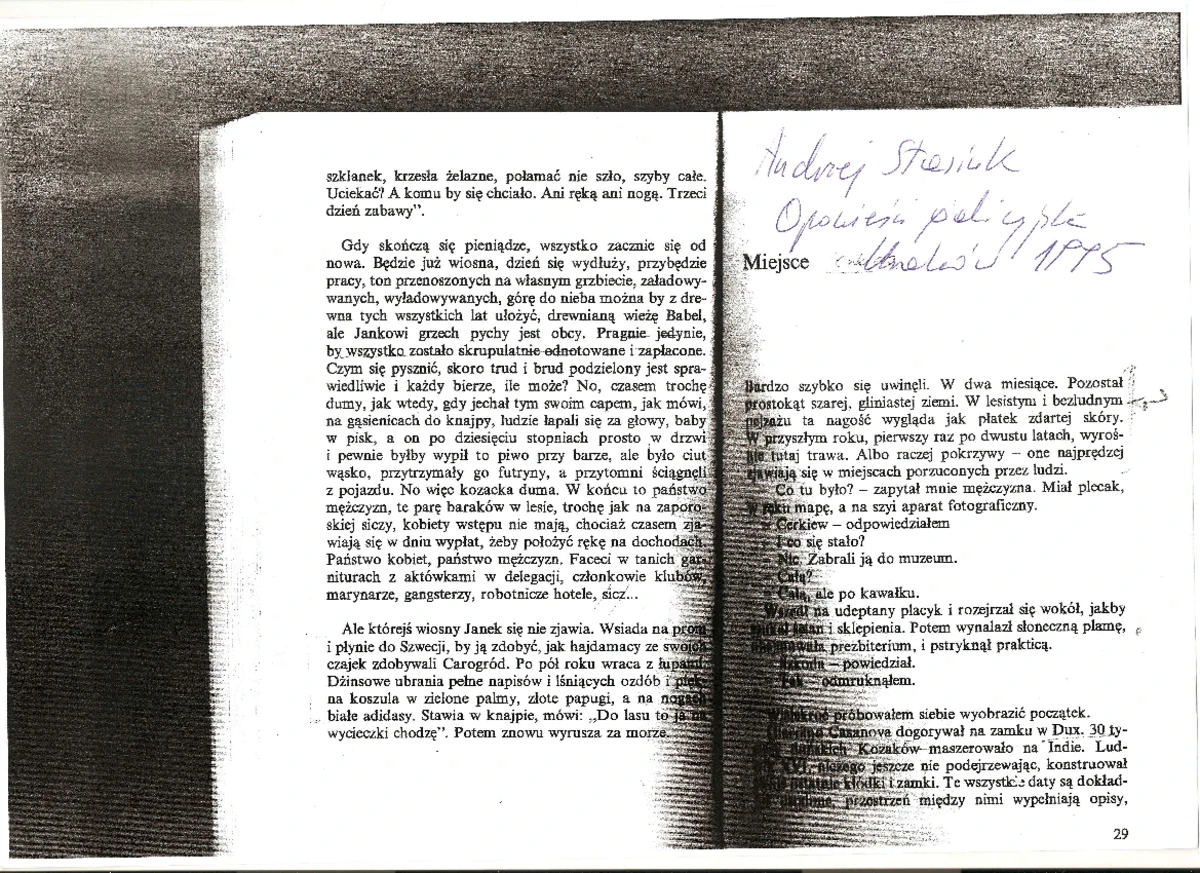 szklanek, krzesła żelazne, połamać nie szło, szyby całe.
Uciekać? A komu by się chciało. Ani ręką ani nogą. Trzeci
dzień zabawy”.
Gdy skończą się pieniądze, wszystko zacznie się od
nowa. Będzie już wiosna, dzień się wydłuży, przybędzie
pracy, ton przenoszonych na własnym grzbiecie, załadowy-
wanych, wyładowywanych, górę do nieba można by z dre-
wna tych wszystkich lat ułożyć, drewnianą wieżę Babel,
ale Jankowi grzech pychy jest obcy. Pragnie jedynie,
by wszystko zostało skrupulatnie odnotowane i zapłacone.
Czym się pysznić, skoro trud i brud podzielony jest spra-
wiedliwie i każdy bierze, ile może? No, czasem trochę
dumy, jak wtedy, gdy jechał tym swoim capem, jak mówi,
na gąsienicach do knajpy, ludzie łapali się za głowy, baby
w pisk, a on po dziesięciu stopniach prosto w drzwi
i pewnie byłby wypił to piwo przy barze, ale było ciut
wąsko, przytrzymały go futryny, a przytomni ściągnęli
z pojazdu. No więc kozacka duma. W końcu to państwo
mężczyzn, te parę baraków w lesie, trochę jak na zaporo-
skiej siczy, kobiety wstępu nie mają, chociaż czasem zja-
wiają się w dniu wypłat, żeby położyć rękę na dochodach.
Państwo kobiet, państwo mężczyzn. Faceci w tanich gar-
niturach z aktówkami w delegacji, członkowie klubów,
marynarze, gangsterzy, robotnicze hotele, sicz...
Ale którejś wiosny Janek się nie zjawia. Wsiada na prom
i płynie do Szwecji, by ją zdobyć, jak hajdamacy ze swoich
czajek zdobywali Carogród. Po pół roku wraca z łupami.
Dżinsowe ubrania pełne napisów i lśniących ozdób i pięk-
na koszula w zielone palmy, złote papugi, a na nogach
białe adidasy. Stawia w knajpie, mówi: „Do lasu to ja na
wycieczki chodzę”. Potem znowu wyrusza za morze.
Andrzej Stasiuk
Opowieści galicyjskie
Kraków 1995
Miejsce
Bardzo szybko się uwinęli. W dwa miesiące. Pozostał
prostokąt szarej, gliniastej ziemi. W lesistym i bezludnym
pejzażu ta nagość wygląda jak płatek zdartej skóry.
W przyszłym roku, pierwszy raz po dwustu latach, wyroś-
nie tutaj trawa. Albo raczej pokrzywy – one najprędzej
zjawiają się w miejscach porzuconych przez ludzi.
– Co tu było? – zapytał mnie mężczyzna. Miał plecak,
w ręku mapę, a na szyi aparat fotograficzny.
– Cerkiew – odpowiedziałem
– I co się stało?
– Nic. Zabrali ją do muzeum.
– Całą?
– Całą, ale po kawałku.
Wszedł na udeptany placyk i rozejrzał się wokół, jakby
szukał ścian i sklepienia. Potem wynalazł słoneczną plamę,
prezbiterium, i pstryknął prakticą.
– Szkoda – powiedział.
– Tak – odmruknąłem.
Wielokroć próbowałem siebie wyobrazić początek.
Casanova dogorywał na zamku w Dux. 30 ty-
Kozaków maszerowało na Indie. Lud-
XVI, niczego jeszcze nie podejrzewając, konstruował
kłódki i zamki. Te wszystkie daty są dokład-
przestrzeń między nimi wypełniają opisy,
29